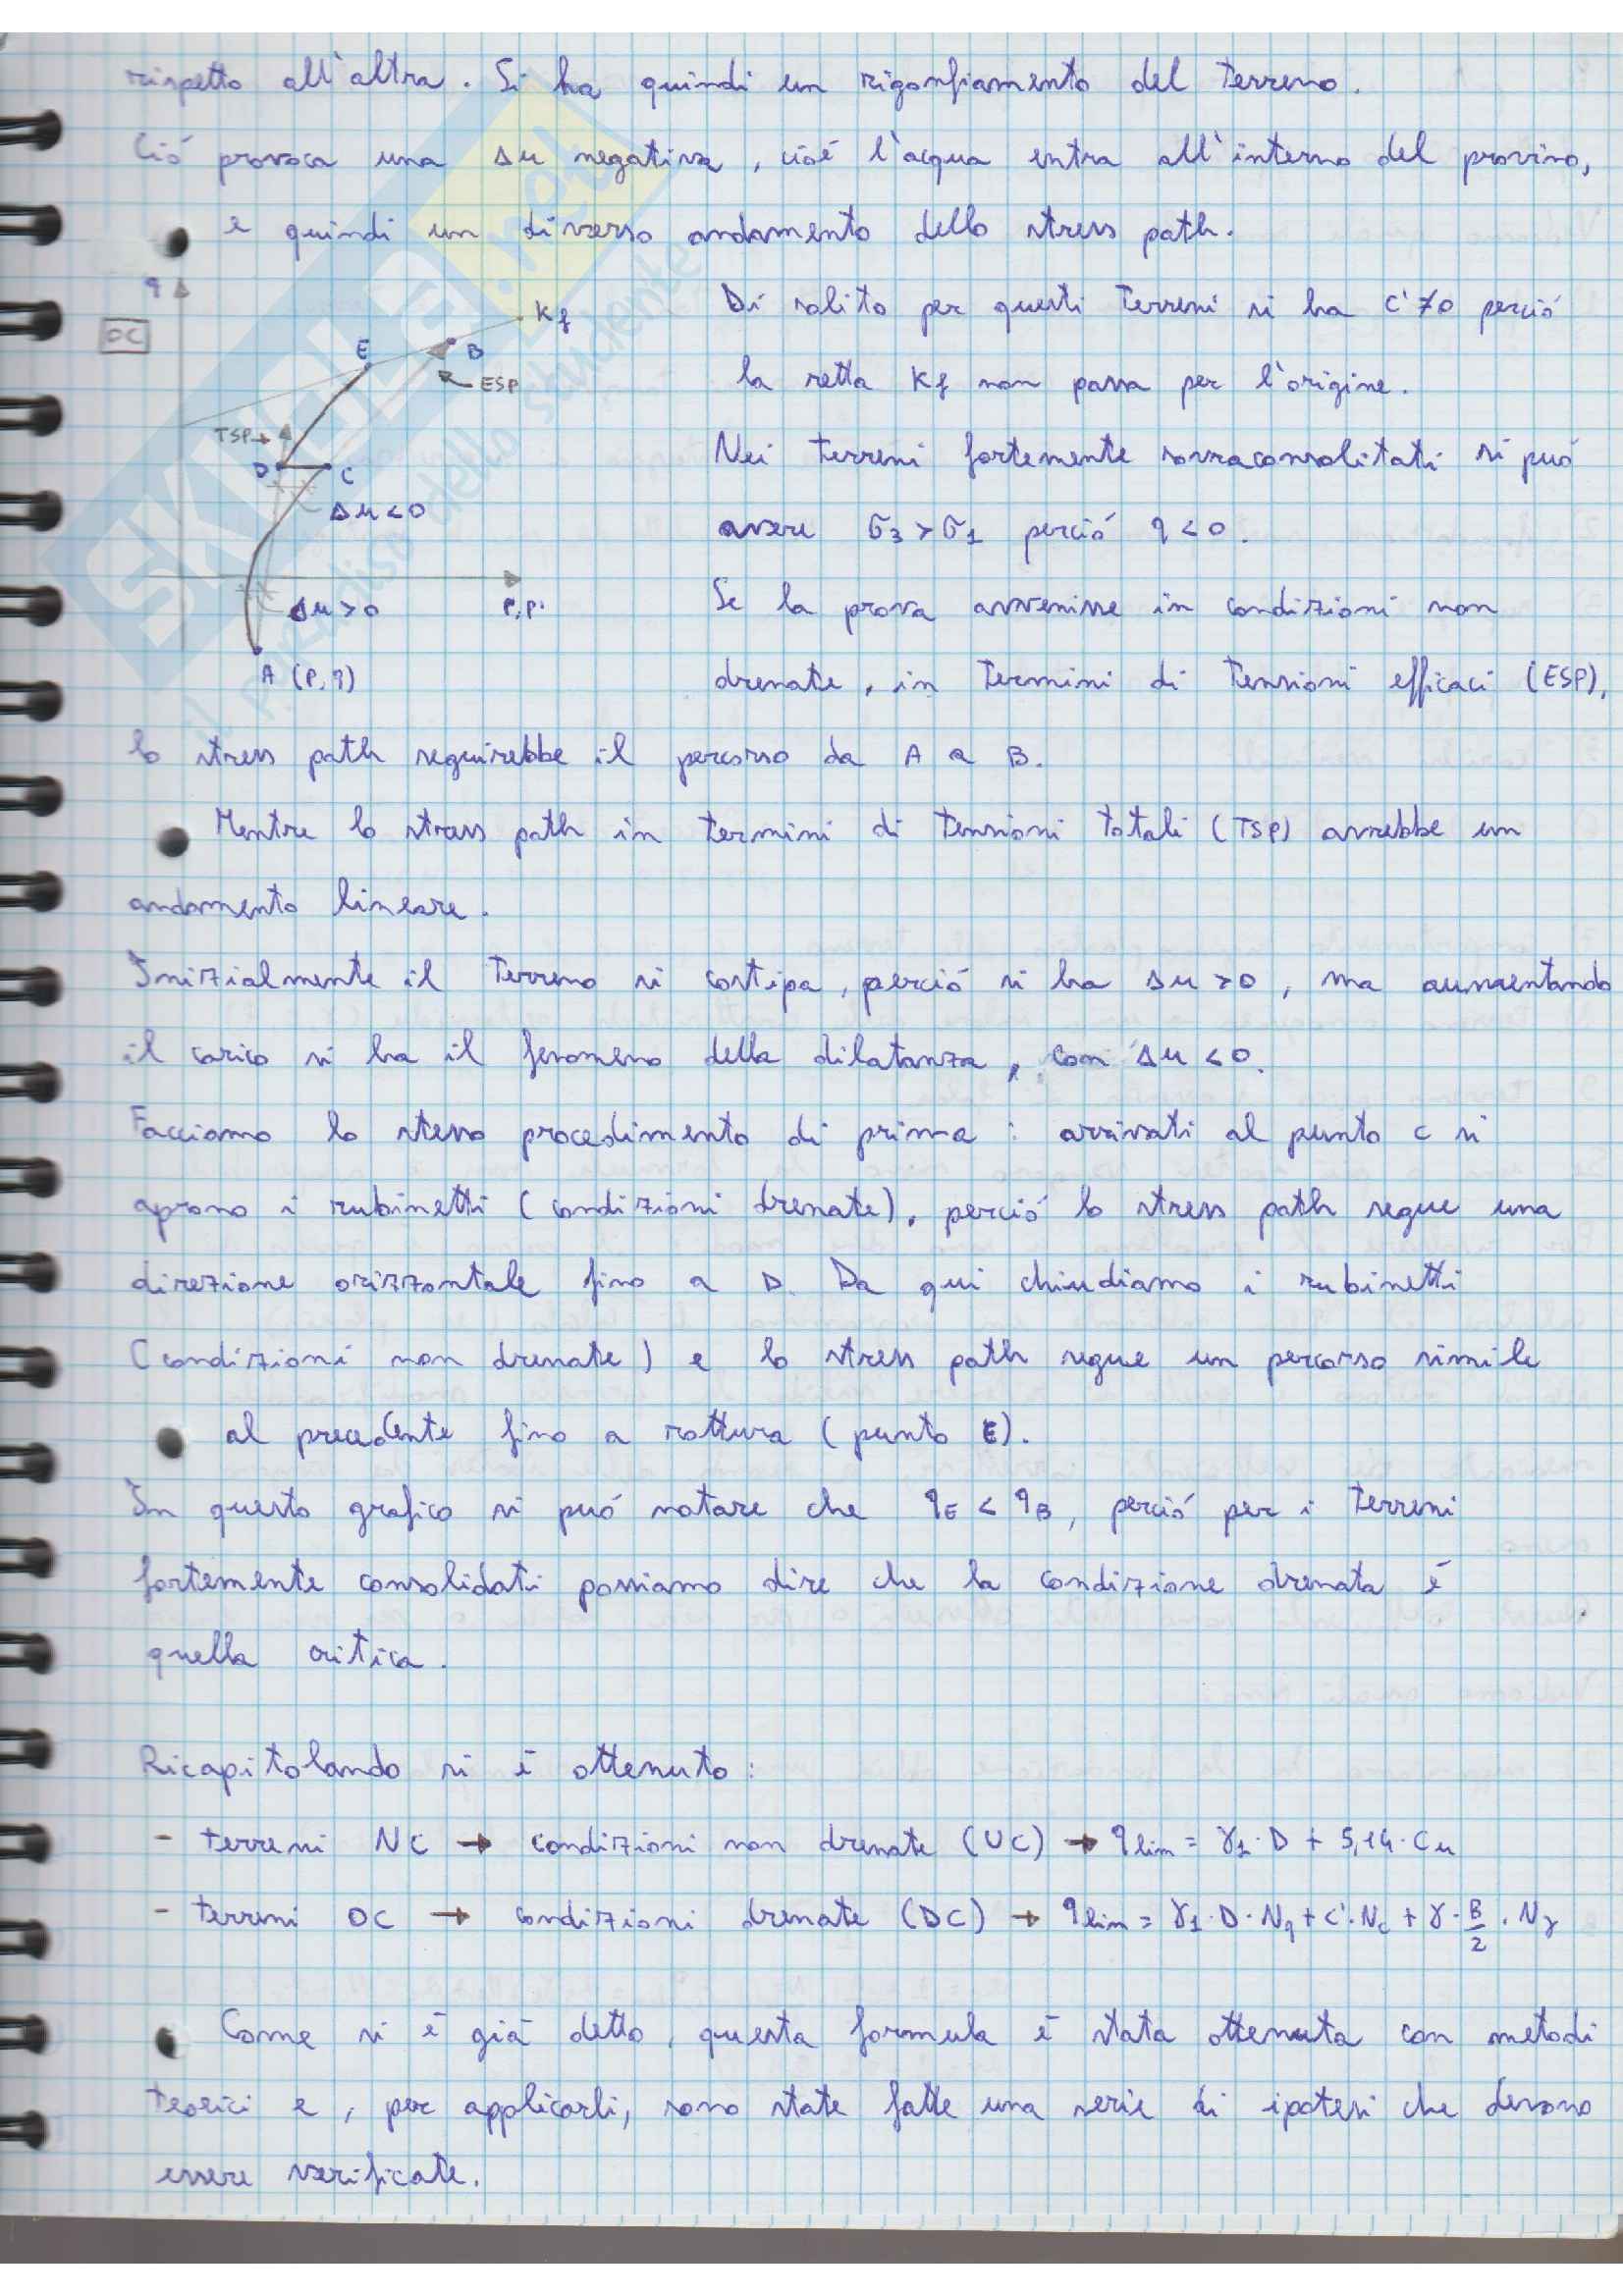 rispetto all'altra. Si ha quindi un rigonfiamento del terreno.
Ció provoca una Δu negativa, cioé l'acqua entra all'interno del provino,
e quindi un diverso andamento dello stress path.
q
OC
Kf
E
B
ESP
TSP
D
C
Δu<0
Δu>0
P,P'
A (P,q)
Di solito per questi terreni si ha C'≠0 perció
la retta Kf non passa per l'origine.
Nei terreni fortemente sovraconsolitati si puó
avere σ3>σ1 perció q<0.
Se la prova avvenisse in condizioni non
drenate, in termini di tensioni efficaci (ESP),
lo stress path seguirebbe il percorso da A a B.
Mentre lo stress path in termini di tensioni totali (TSP) avrebbe un
andamento lineare.
Inizialmente il terreno si costipa, perció si ha Δu>0, ma aumentando
il carico si ha il fenomeno della dilatanza, con Δu<0.
Facciamo lo stesso procedimento di prima: arrivati al punto C si
aprono i rubinetti (condizioni drenate), perció lo stress path segue una
direzione orizzontale fino a D. Da qui chiudiamo i rubinetti
(condizioni non drenate) e lo stress path segue un percorso simile
al precedente fino a rottura (punto E).
In questo grafico si puó notare che qE < qB, perció per i terreni
fortemente consolidati possiamo dire che la condizione drenata é
quella critica.
Ricapitolando si é ottenuto:
- terreni NC → condizioni non drenate (UC) → qlim = γ1·D + 5,14·Cu
- terreni OC → condizioni drenate (DC) → qlim = γ1·D·Nq + C'·Nc + γ·B/2·Nγ
Come si é giá detto, questa formula é stata ottenuta con metodi
teorici e, per applicarli, sono state fatte una serie di ipotesi che devono
essere verificate.
SKUOLA.net
il paradiso dello studente